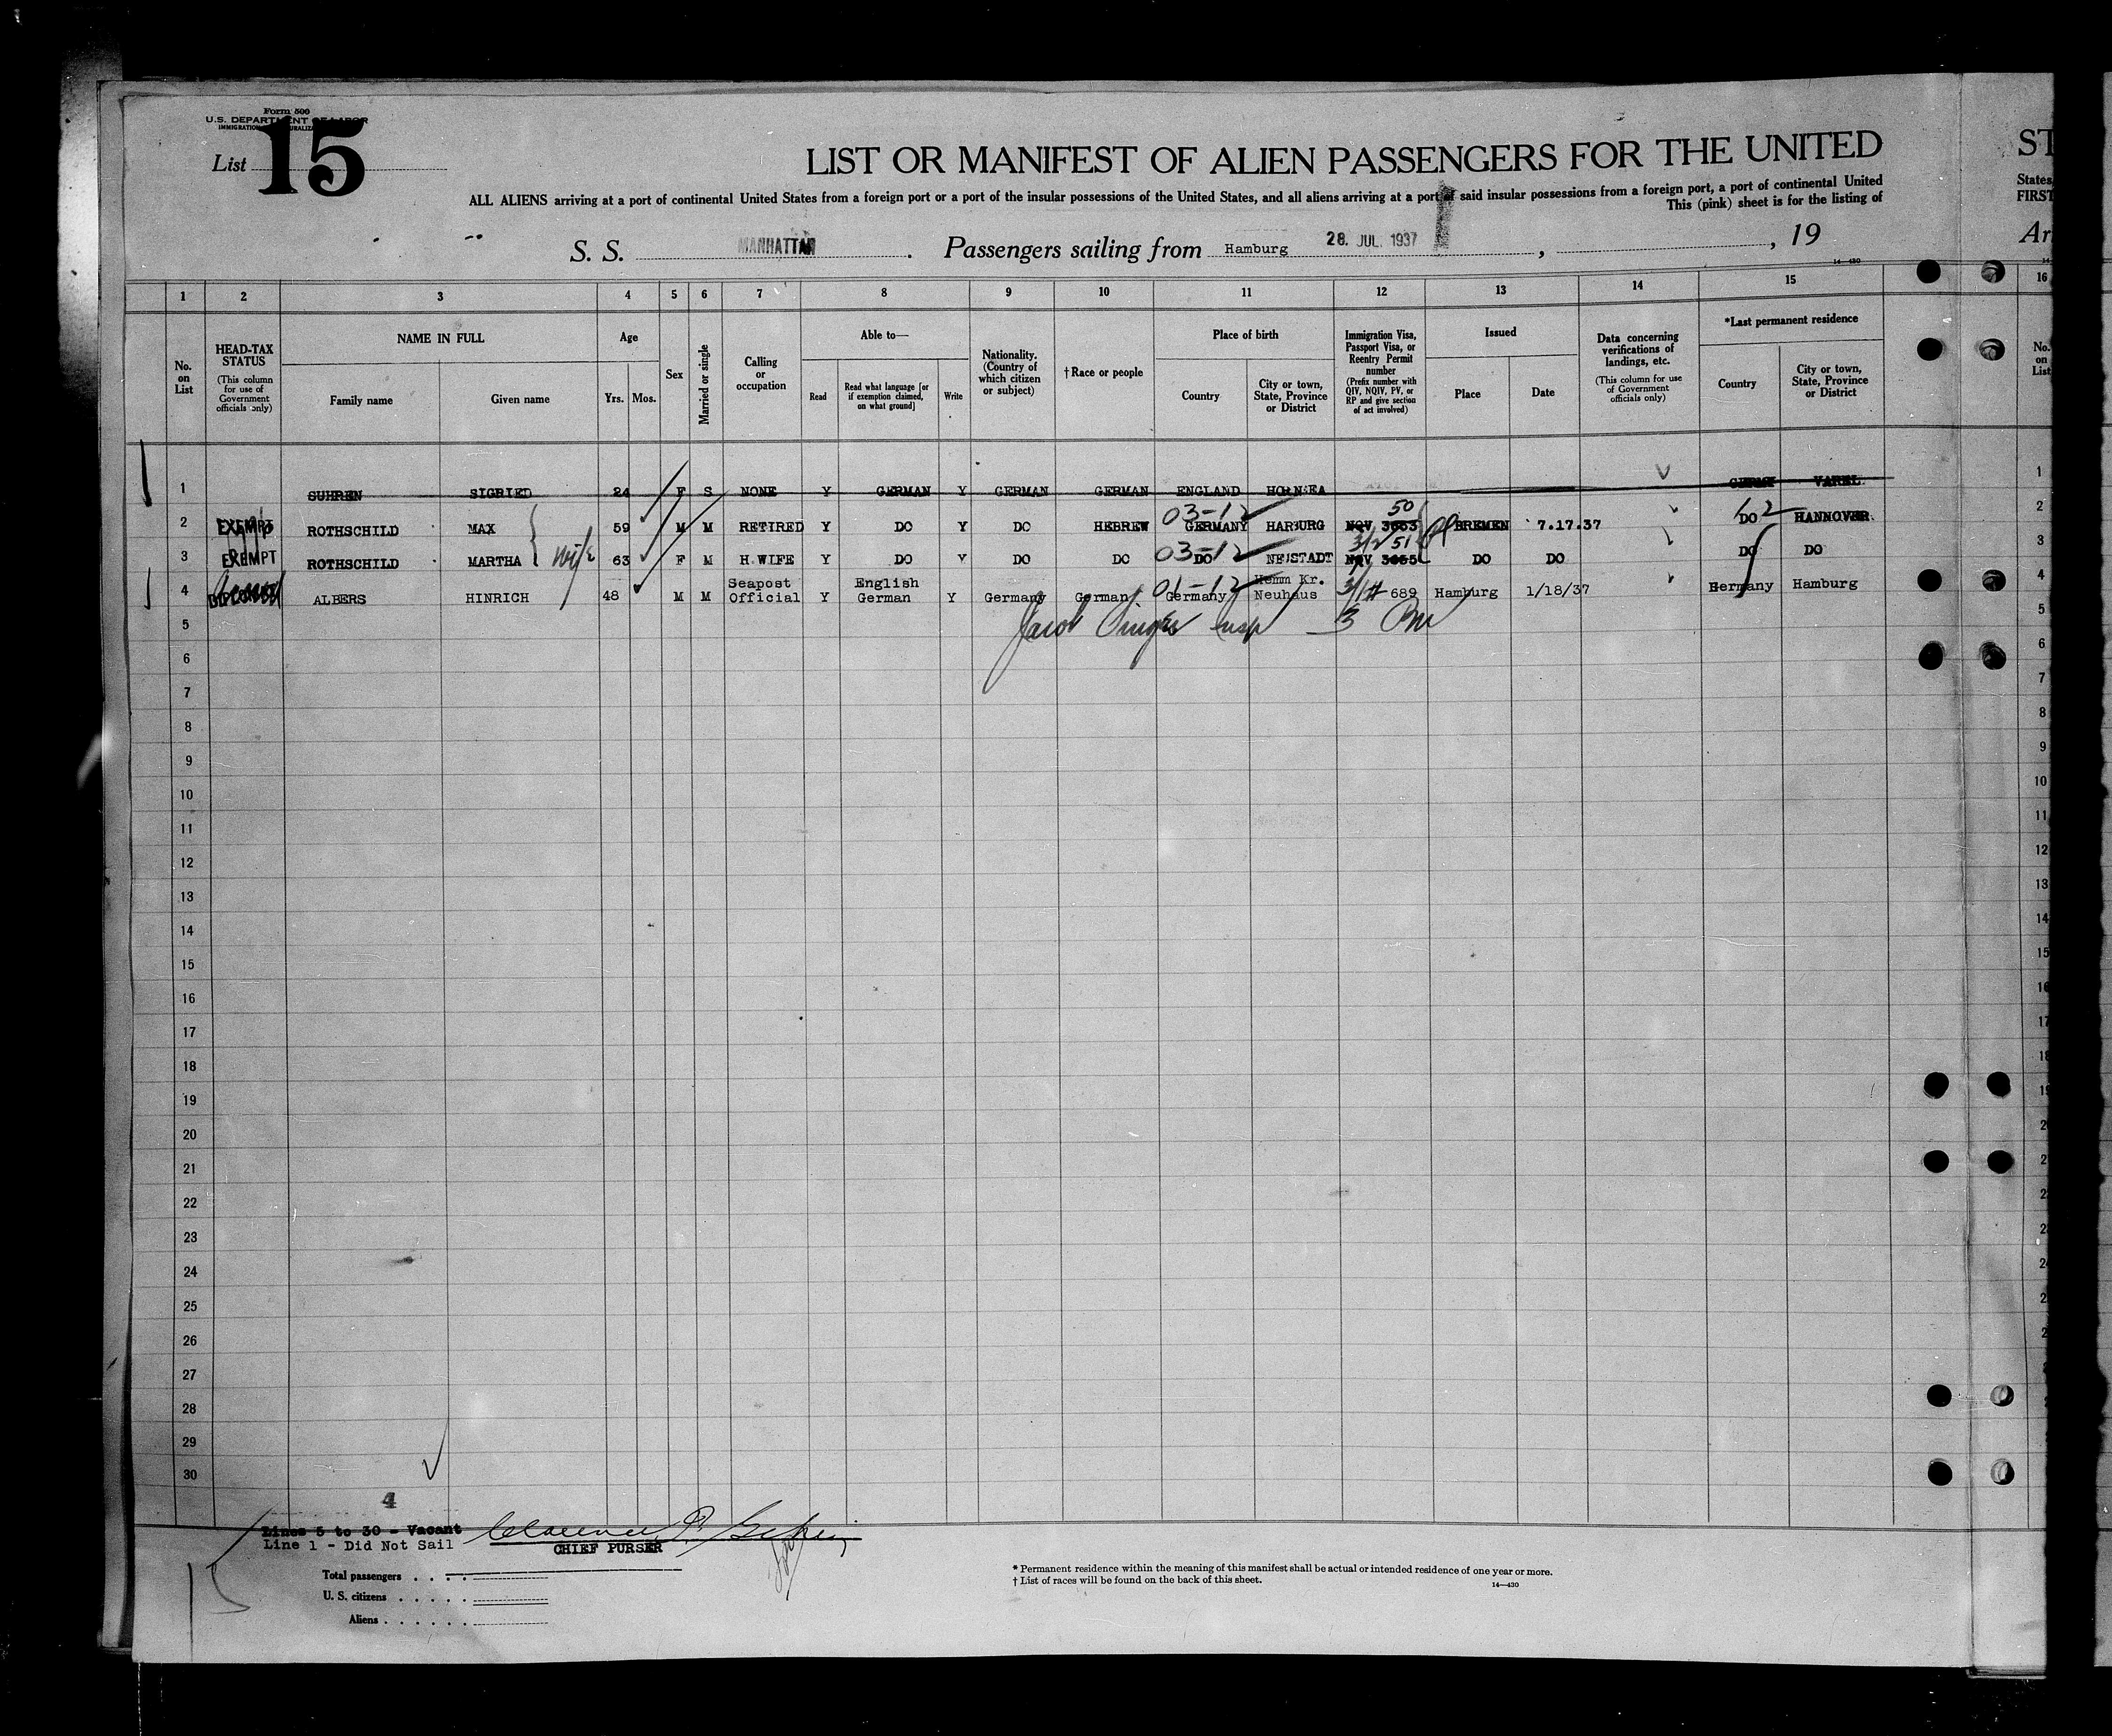 Form 500
U.S. DEPARTMENT OF LABOR
List 15
LIST OR MANIFEST OF ALIEN PASSENGERS FOR THE UNITED
ST
ALL ALIENS arriving at a port of continental United States from a foreign port or a port of the insular possessions of the United States, and all aliens arriving at a port of said insular possessions from a foreign port, a port of continental United
States,
This (pink) sheet is for the listing of
FIRST
S. S. MANHATTAN. Passengers sailing from Hamburg 28. JUL. 1937, , 19
Ar
14—430
1 2 3 4 5 6 7 8 9 10 11 12 13 14 15 16
No. on List
HEAD-TAX STATUS
(This column for use of Government officials only)
NAME IN FULL
Family name
Given name
Age
Yrs. Mos.
Sex
Married or single
Calling or occupation
Able to—
Read
Read what language [or if exemption claimed, on what ground]
Write
Nationality. (Country of which citizen or subject)
†Race or people
Place of birth
Country
City or town, State, Province or District
Immigration Visa, Passport Visa, or Reentry Permit number
(Prefix number with QIV, NQIV, PV, or RP and give section of act involved)
Issued
Place
Date
Data concerning verifications of landings, etc.
(This column for use of Government officials only)
*Last permanent residence
Country
City or town, State, Province or District
No. on List
1 SUHREN SIGRIED 24 F S NONE Y GERMAN Y GERMAN GERMAN ENGLAND HORNSEA GERMY VAREL 1
50
03-12
2 EXEMPT ROTHSCHILD MAX 59 M M RETIRED Y DO Y DO HEBREW GERMANY HARBURG NQV 3653 BREMEN 7.17.37 DO HANNOVER 2
wife
51
03-12
3 EXEMPT ROTHSCHILD MARTHA 63 F M H.WIFE Y DO Y DO DO DO NEUSTADT NQV 3655 DO DO DO DO 3
01-12
4 ALBERS HINRICH 48 M M Seapost Official Y English German Y Germany German Germany Hemm Kr. Neuhaus 689 Hamburg 1/18/37 Germany Hamburg 4
5 5
6 6
7 7
8 8
9 9
10 10
11 11
12 12
13 13
14 14
15 15
16 16
17 17
18 18
19 19
20
21
22
23
24
25
26
27
28
29
30
4
Lines 5 to 30 - Vacant
Line 1 - Did Not Sail
CHIEF PURSER
Total passengers . . . .
U. S. citizens . . . . .
Aliens . . . . . .
* Permanent residence within the meaning of this manifest shall be actual or intended residence of one year or more.
† List of races will be found on the back of this sheet.
14—430